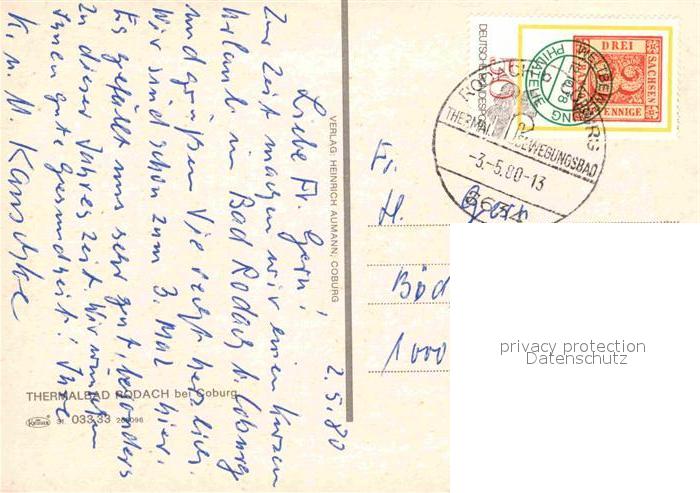 2.5.80
Liebe Fr. Gern!
Zur Zeit machen wir einen kurzen
Urlaub in Bad Rodach b. Coburg
und grüßen Sie recht herzlich.
Wir sind schon zum 3. Mal hier.
Es gefällt uns sehr gut, besonders
zu dieser Jahreszeit. Wir wünschen
Ihnen gute Gesundheit! Ihre
K. u. M.
VERLAG: HEINRICH AUMANN, COBURG
THERMALBAD RODACH bei Coburg
31. 033 33
DEUTSCHE BUNDESPOST
30
WELTBEWEGUNG
PHILATELIE
DREI
PFENNIGE
SACHSEN
3
THERMAL BEWEGUNGSBAD
-3.-5.80-13
Fr.
H.
Böd
1000
privacy protection
Datenschutz